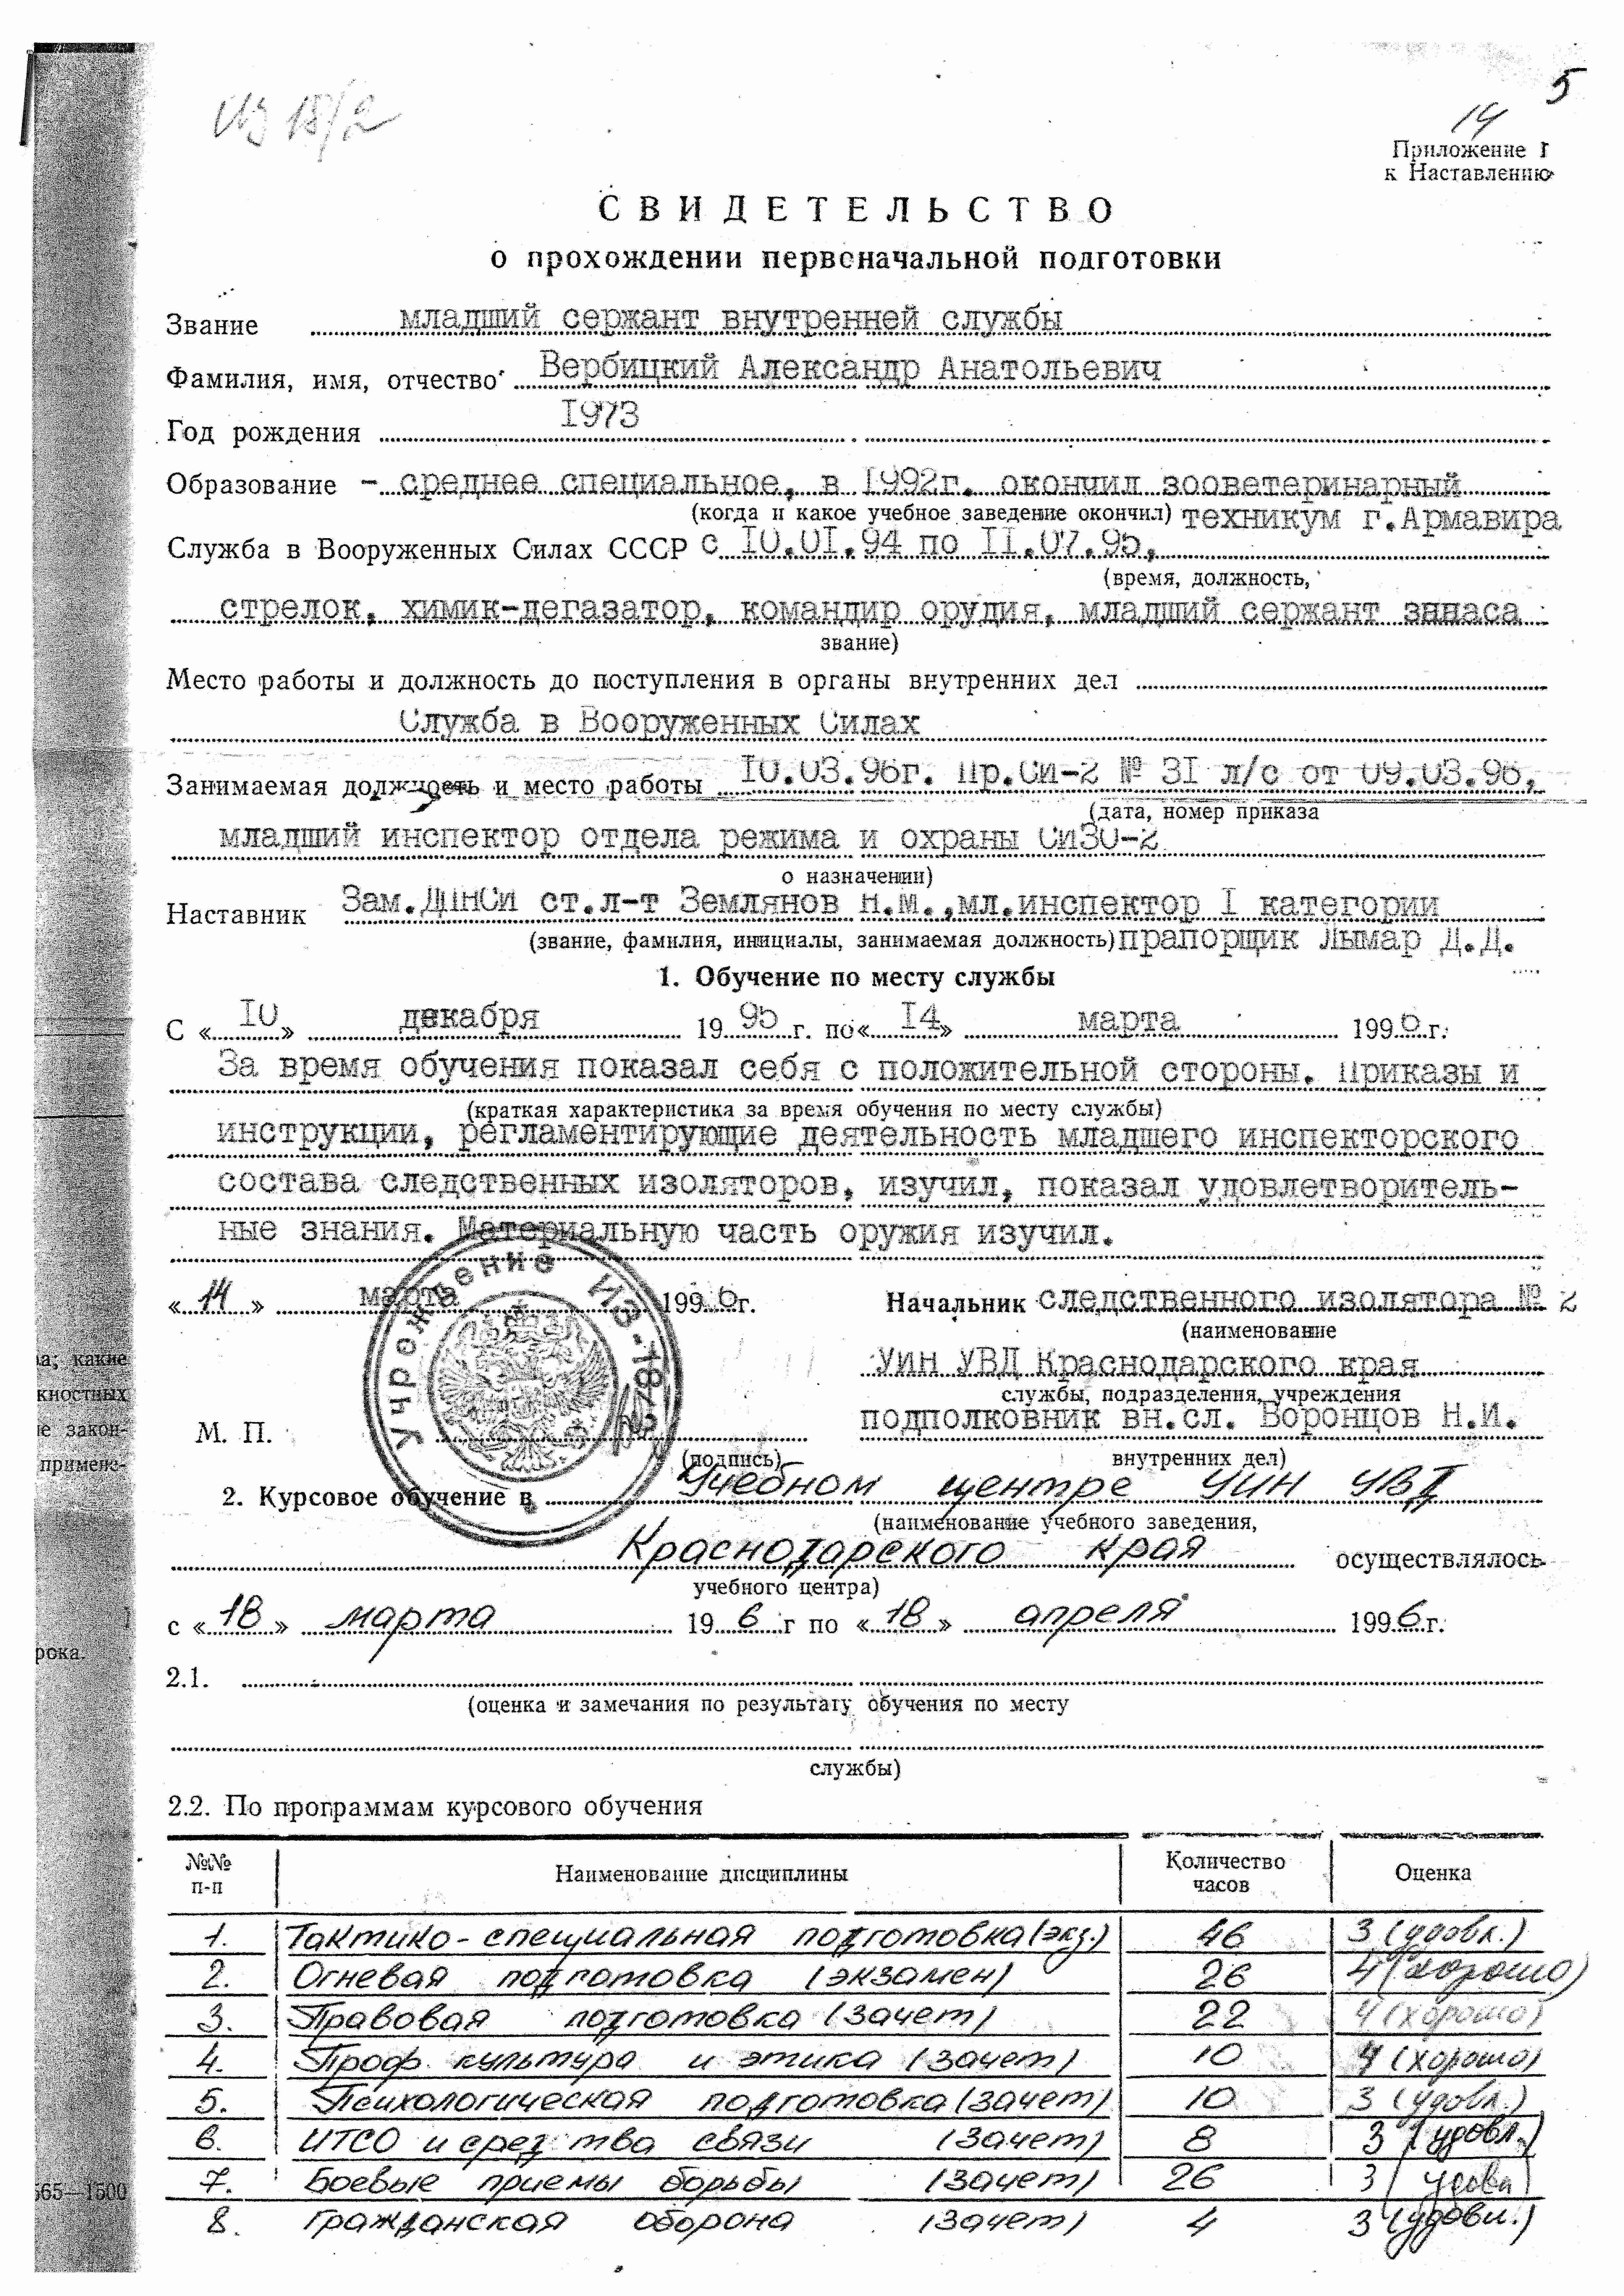 5
Из 18/2
14
Приложение I
к Наставлению
СВИДЕТЕЛЬСТВО
о прохождении первоначальной подготовки
Звание младший сержант внутренней службы
Фамилия, имя, отчество Вербицкий Александр Анатольевич
Год рождения I973
Образование - среднее специальное, в I992г. окончил зооветеринарный
(когда и какое учебное заведение окончил) техникум г.Армавира
Служба в Вооруженных Силах СССР с I0.0I.94 по II.07.95,
(время, должность,
стрелок, химик-дегазатор, командир орудия, младший сержант запаса
звание)
Место работы и должность до поступления в органы внутренних дел
Служба в Вооруженных Силах
Занимаемая должность и место работы I0.03.96г. пр.СИ-2 № 3I л/с от 09.03.96,
(дата, номер приказа
младший инспектор отдела режима и охраны СИЗО-2
о назначении)
Наставник Зам.ДПНСИ ст.л-т Землянов Н.М.,мл.инспектор I категории
(звание, фамилия, инициалы, занимаемая должность) прапорщик Лымар Д.Д.
1. Обучение по месту службы
С «I0» декабря 1995г. по «I4» марта 1996г.
За время обучения показал себя с положительной стороны. Приказы и
(краткая характеристика за время обучения по месту службы)
инструкции, регламентирующие деятельность младшего инспекторского
состава следственных изоляторов, изучил, показал удовлетворитель-
ные знания. Материальную часть оружия изучил.
«14» марта 1996г. Начальник следственного изолятора № 2
(наименование
УИН УВД Краснодарского края
службы, подразделения, учреждения
М. П. подполковник вн.сл. Воронцов Н.И.
(подпись) внутренних дел)
Учреждение ИЗ-18/2
2. Курсовое обучение в Учебном центре УИН УВД
(наименование учебного заведения,
Краснодарского края осуществлялось
учебного центра)
с «18» марта 19 6 г по «18» апреля 1996г.
2.1.
(оценка и замечания по результату обучения по месту
службы)
2.2. По программам курсового обучения
№№ п-п Наименование дисциплины Количество часов Оценка
1. Тактико-специальная подготовка (экз.) 46 3 (удовл.)
2. Огневая подготовка (экзамен) 26 4 (хорошо)
3. Правовая подготовка (зачет) 22 4 (хорошо)
4. Проф. культура и этика (зачет) 10 4 (хорошо)
5. Психологическая подготовка (зачет) 10 3 (удовл.)
6. ИТСО и средства связи (зачет) 8 3 (удовл.)
7. Боевые приемы борьбы (зачет) 26 3 (удовл)
8. Гражданская оборона (зачет) 4 3 (удовл.)
а; какие
жностных
е закон-
примене-
рока.
565—1500